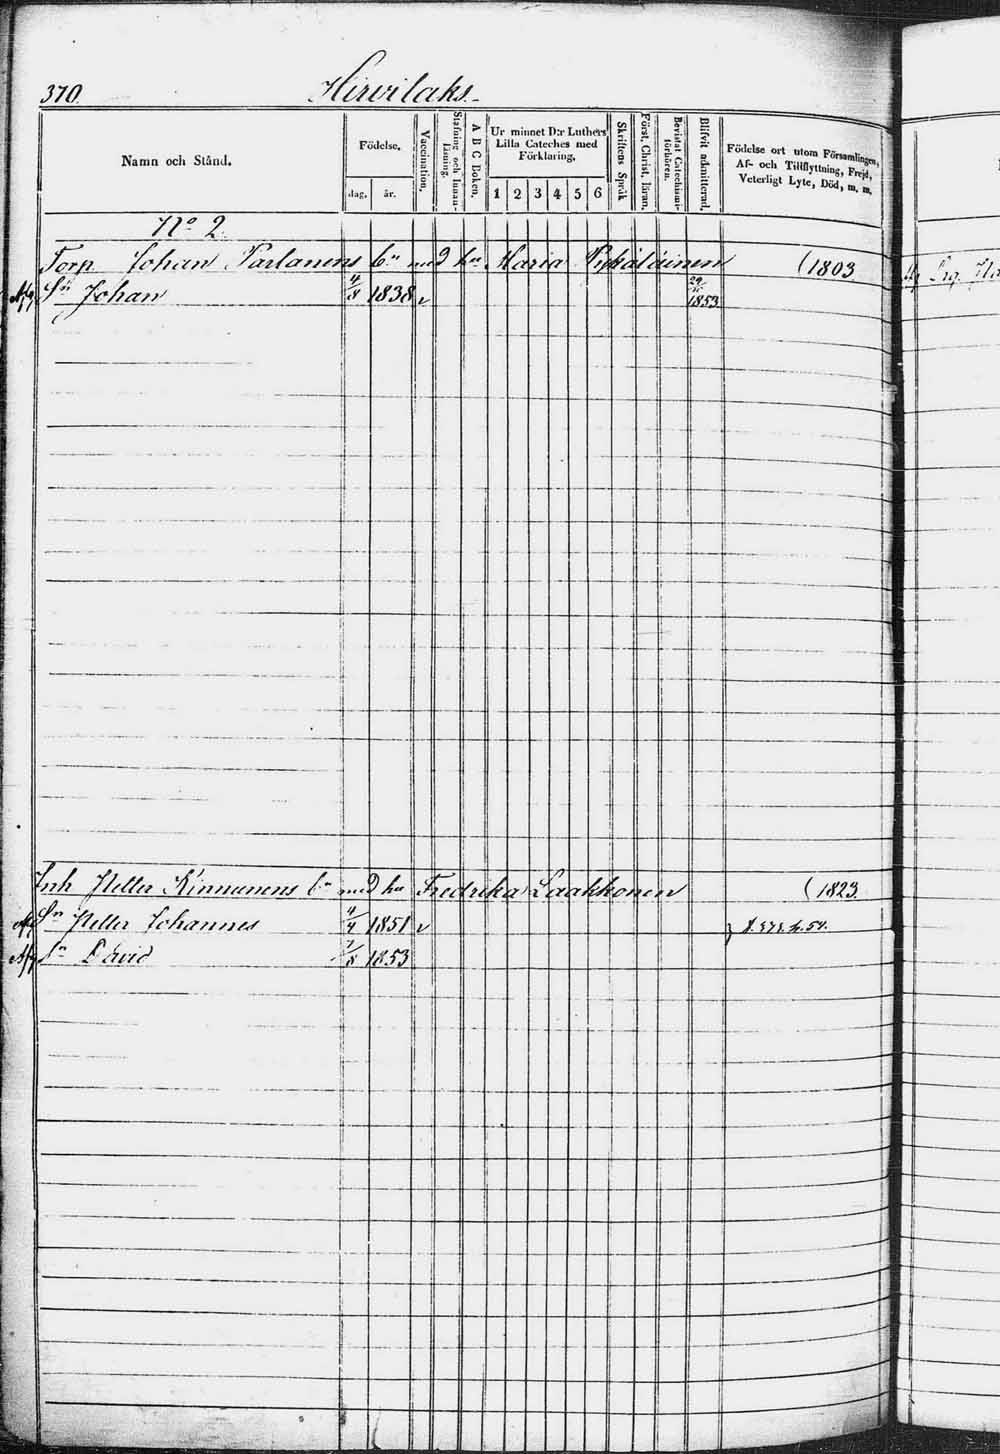 370. Hirvilaks.
Namn och Stånd.
Födelse.
dag. år.
Vaccination.
Stafning och Innanläsning.
A B C Boken.
Ur minnet D:r Luthers Lilla Cateches med Förklaring.
1 2 3 4 5 6
Skriftens Språk
Först. Christ. läran.
Bevistat Catechismiförhören.
Blifvit admitterad.
Födelse ort utom Församlingen, Af- och Tillflyttning, Frejd, Veterligt Lyte, Död, m. m.
No 2.
Torp Johan Partanens bn med hu Maria (1803
Sn Johan 1838 v 1853
Inh Petter Kinnunens bn med hu Fredrika Laakkonen (1823
Sn Petter Johannes 11/4 1851 v
Sn David 7/8 1853